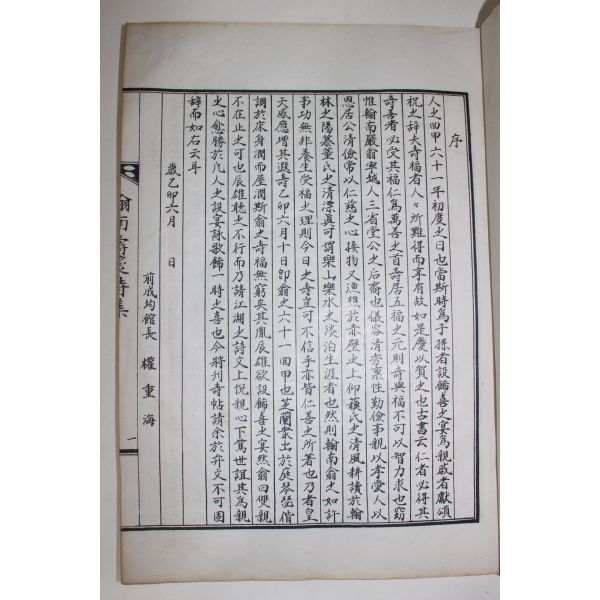 序
人之回甲六十一年初度之日也當斯時爲子孫者設飾喜之宴爲親戚者獻頌
祝之辞夫壽福者人々所難得而享有故如是慶以賀之也古書云仁者必得其
壽善者必受其福仁爲萬善之首壽居五福之元則壽與福不可以智力求也窃
惟翰南嚴翁寧越人三省堂公之后裔也儀容清秀禀性勤儉事親以孝愛人以
恩居公清儉常以仁慈之心接物又漁樵於赤壁之上仰蘓氏之清風耕讀於翰
林之陽慕董氏之清漂眞可謂樂山樂水之淡泊生涯者也然則翰南翁之如許
事功無非養生受福之理則今日之壽豈可不信乎亦皆仁善之所著也乃者皇
天感應增其遐壽乙卯六月十日卽翁之六十一回甲也芝蘭衆出於庭琴瑟偕
調於床身潤而屋潤斯翁之壽福無窮矣其胤辰雄欲設飾喜之宴然翁曰雙親
不在止之可也辰雄聴之不行而乃請江湖之詩文上悅親心下篤世誼其爲親
之心愈勝於凡人之設宴詠歌飾一時之喜也今將刋壽帖請余於弁文不可固
辞而如右云耳
歲乙卯六月 日
前成均館長 權重海
翰南壽宴詩集
一